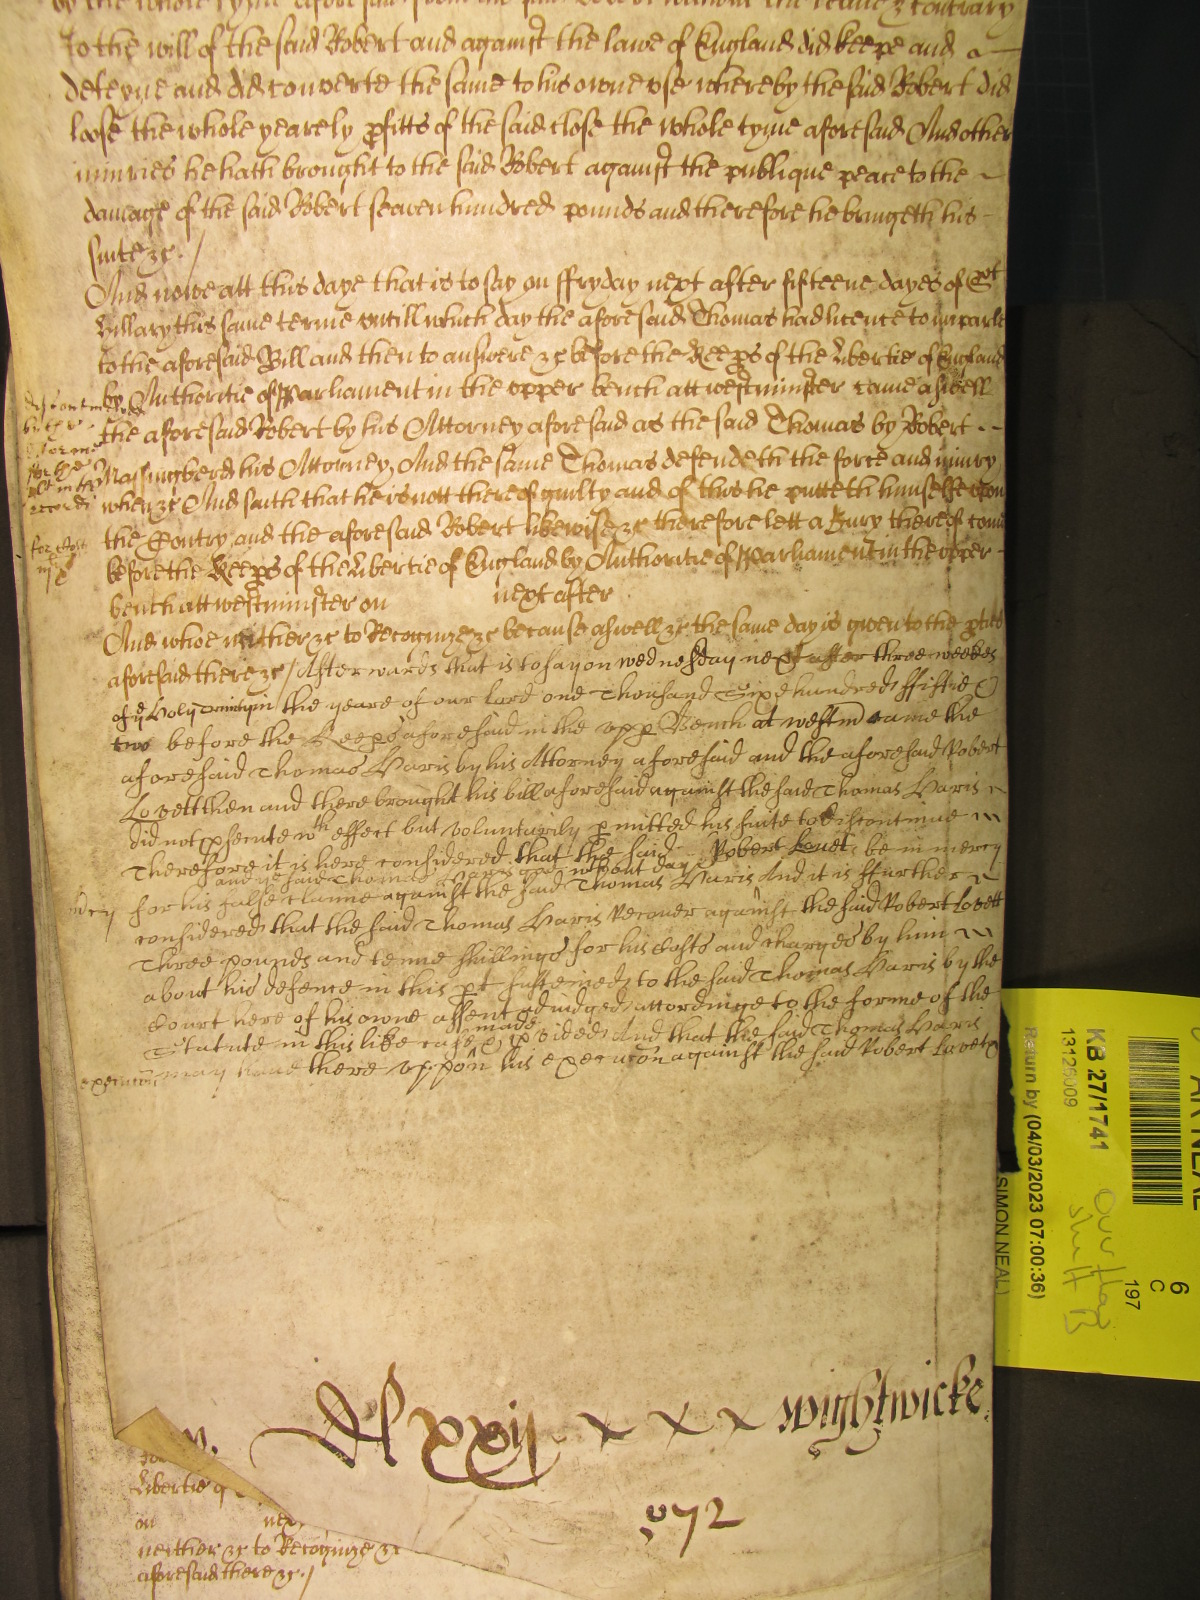 to the will of the said Robert and against the lawe of England did keepe and a
deteyne and did converte the same to his owne vse whereby the said Robert did
loose the whole yearely pfitts of the said close the whole tyme aforesaid And other
iniuries he hath brought to the said Robert against the publique peace to the
damage of the said Robert seaven hundred pounds and therefore he bringeth his
suite &c /
And nowe att this daye that is to say on ffryday next after fifteene dayes of St
hillary this same terme vntill which day the aforesaid Thomas had licence to imparle
to the aforesaid Bill and then to answere &c before the Keeps of the libertie of England
by Authoritie of Parliament in the vpper bench att westminster came aswell
the aforesaid Robert by his Attorney aforesaid as the said Thomas by Robert
Massingberd his Attorney, And the same Thomas defendeth the force and iniury
when &c And saith that he is nott thereof guilty and of this he putteth himselfe vpon
the Contry, and the aforesaid Robert likewise &c therefore lett a Jury thereof come
before the Keeps of the libertie of England by Authoritie of Parliament in the vpper
bench att westminster on next after
And whoe neither &c to Recognize &c because aswell &c the same day is given to the pties
aforesaid there &c / Afterwards that is to say on wednesday next after three weekes
of ye Holy Trinity in the yeare of our lord one Thousand Sixe hundred ffiftie
two before the Keeps aforesaid in the vpp Bench at westm came the
aforesaid Thomas Haris by his Attorney aforesaid and the aforesaid Robert
Lovett then and there brought his bill aforesaid against the said Thomas Haris
did not psecute wth effect but voluntarily pmitted his suite to discontinue
Therefore it is here considered that the said Robert Lovet be in mercy
and ye said Thomas Haris goe without day &c
for his false clame against the said Thomas Haris And it is ffurther
considered that the said Thomas Haris Recouer against the said Robert Lovett
Three pounds and tenne shillings for his Costs and charges by him
about his defence in this pt susteined to the said Thomas Haris by the
Court here of his owne assent adiudged, attordinge to the forme of the
made
Statute in this like case & pvided And that the said Thomas Haris
may haue there vppon his execucon against the said Robert Lovet &c
mercy
execucon
xxij x x x wightwicke
972
libertie of
on nex
neither &c to Recognize &c
aforesaid there &c /
KB 27/1741
13125009
Return by (04/03/2023 07:00:36)
SIMON NEAL
6
C
197